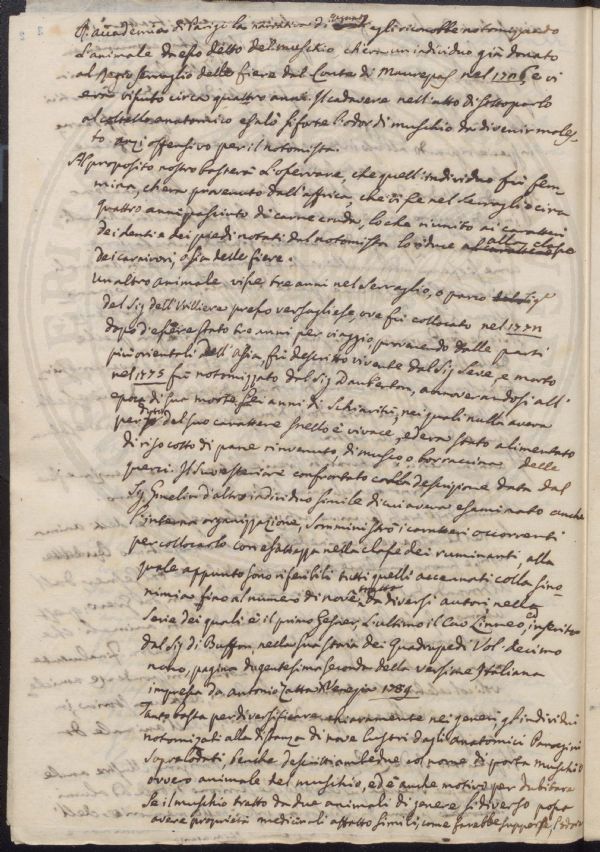 R. accademia di Parigi la narrativa di egli riconobbe notomizzando
L'animale da esso detto del muschio ch'era un individuo già donato
al Regio serraglio delle fiere dal Conte di Maurepas nel 1726, e vi
era vissuto circa quattro anni. Il cadavere nell'atto di sottoporlo
al coltello anatomico esalò sì forte l'odor di muschio da divenir moles-
to anzi offensivo per il notomista.
Al proposito nostro basterà l'osservare, che quell'individuo fù fem-
mina, ch'era provenuto dall'affrica, che si fe nel Serraglio circa
quattro anni pasciuto di carne cruda, lo che riunito ai caratteri
dei denti e dei piedi notati dal notomista lo riduce alla classe
dei carnivori, o sia delle fiere.
Un altro animale visse tre anni nel serraglio, o parco
del Sig. dell'Vrilliere presso versaglies, ove fù collocato nel 1772
dopo d'essere stato tre anni per viaggio, provenendo dalle parti
più orientali dell'asia, fù descritto vivente dal Sig. Seve, e morto
nel 1775 fù notomizzato dal Sig. Daubenton, annoverandosi all'
epoca di sua morte sei anni di schiavitù, nei quali nulla aveva
perduto del suo carattere snello e vivace, ed era stato alimentato
di riso cotto di pane rinvenuto, di musco o borraccina delle
querci. Il di confrontato colla descrizione data dal
Sig. Gmelin d'altro individuo simile di cui aveva esaminato anche
l'interna organizzazione, somministrò i caratteri occorrenti
per collocarlo con esattezza nella classe dei ruminanti, alla
quale appunto sono riferibili tutti quelli accennati colla sino-
nimia fino al numero di nove da diversi autori nella
Serie dei quali è il primo Gesner, l'ultimo il Cav. Linneo, ed inserita
dal Sig. di Buffon, nella sua storia dei Quadrupedi Vol. decimo
nono, pagina dugentesima seconda della versione Italiana
impressa da antonio Zatta Venezia
Tanto basta per diversificare chiaramente nei generi gl'individui
notomizzati alla distanza di nove lustri dagli anatomici Parigini
Sopralodati, benche descritti ambedue col nome di porta muschio
ovvero animale del muschio, ed è anche motivo per dubitare
Se il muschio tratto da due animali di genere sì diverso possa
avere proprietà medicinali affatto simili, come sarebbe supporsi,